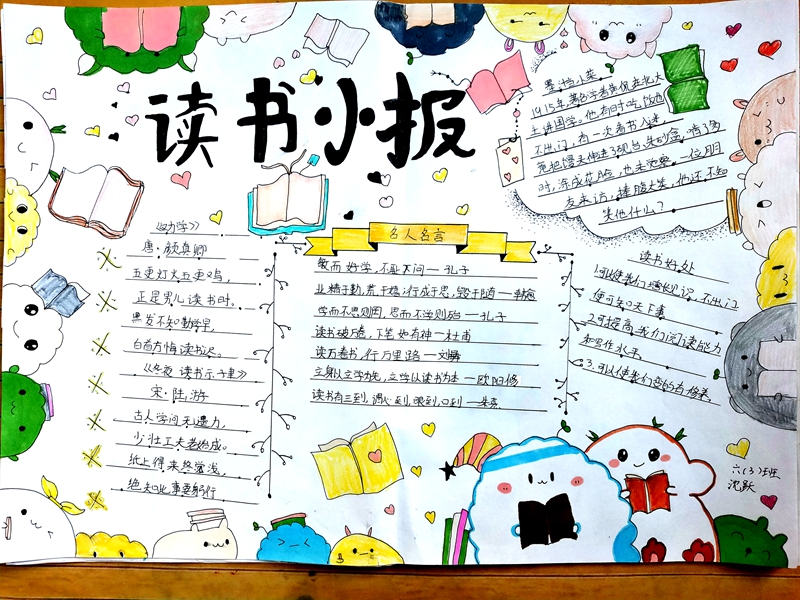 读书小报
墨汁小菜
1915年,著名学者
在北大
主讲国学。他有时吃饭也
不出门,有一次看书入迷
竟把馒头伸进了砚台、朱砂盒,啃了多
时,涂成花脸,也未觉察,一位朋
友来访,捧腹大笑,他还不知
笑他什么?
《劝学》
唐·颜真卿
五更灯火五更鸡,
正是男儿读书时。
黑发不知勤学早,
白首方悔读书迟。
《冬夜读书示子聿》
宋·陆游
古人学问无遗力,
少壮工夫老始成。
纸上得来终觉浅,
绝知此事要躬行
名人名言
敏而好学,不耻下问—孔子
业精于勤,荒于嬉;行成于思,毁于随—韩愈
学而不思则罔,思而不学则殆—孔子
读书破万卷,下笔如有神—杜甫
读万卷书,行万里路—刘彝
立身以立学为先,立学以读书为本—欧阳修
读书有三到,谓心到,眼到,口到—朱熹
读书好处
1.可以使我们增长见识,不出门
便可知天下事
2.可提高我们阅读能力
和写作水平
3.可以使我们变的有修养。
六(3)班
沈跃